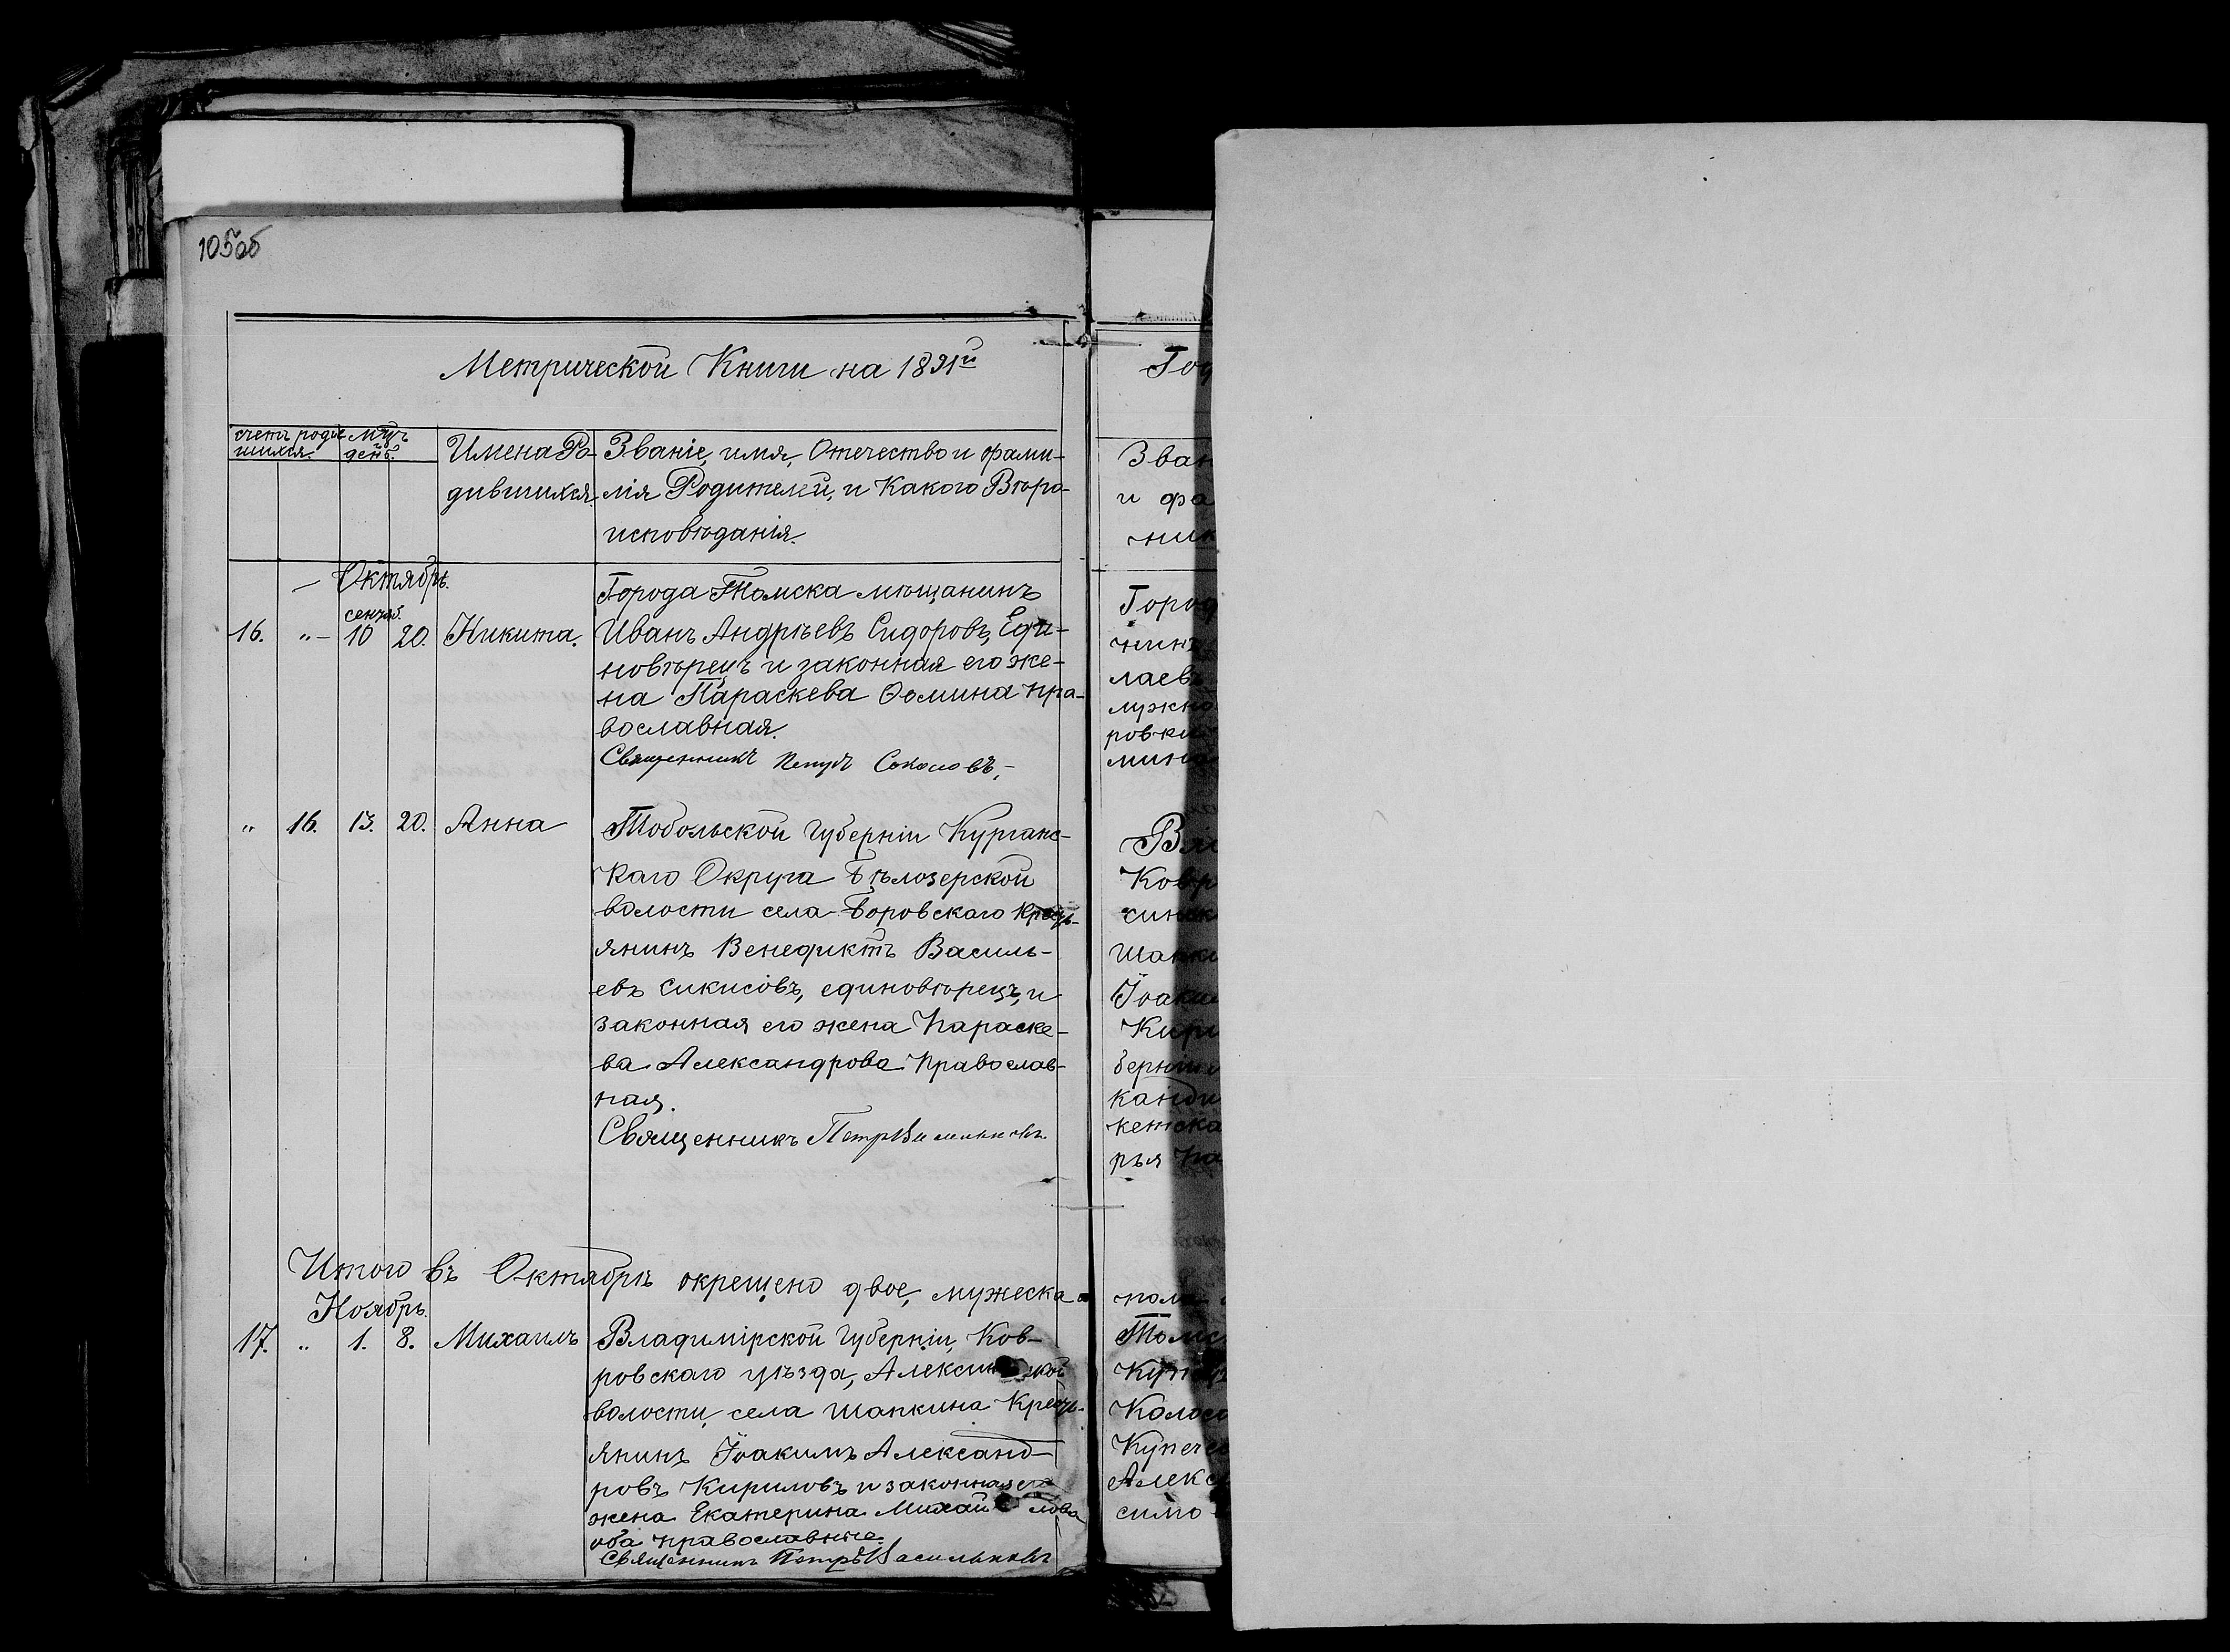 105об
Метрической Книги на 1891й
счетъ родив-
шихся.
мѣцъ
день.
Имена Ро-
дившихся.
Званіе, имя, Отечество и фами-
лія Родителей, и Какого Вѣро-
исповѣданія.
Октябрь.
сентяб.
16. „ – 10 20. Никита.
Города Томска мѣщанинъ
Иванъ Андрѣевъ Сидоровъ, Еди-
новѣрецъ и законная его же-
на Параскева Ѳомина пра-
вославная.
Священникъ Петръ Соколовъ,
„ 16. 13. 20. Анна
Тобольской Губерніи Курганс-
каго Округа Бѣлозерской
волости села Боровскаго Кресть-
янинъ Венедиктъ Василь-
евъ Сикисовъ, единовѣрецъ, и
законная его жена Параске-
ва Александрова Православ-
ная.
Священникъ Петръ Васильковъ.
Итого въ Октябрѣ окрещено двое, мужеска
Ноябрь.
17. „ 1. 8. Михаилъ
Владимірской Губерніи, Ков-
ровскаго уѣзда, Алексинской
волости, села Шапкина Кресть-
янинъ Іоакимъ Александ-
ровъ Кириловъ и законная его
жена Екатерина Михайлова
оба православные.
Священникъ Петръ Васильковъ
Гор
Зван
и фа
ник
Город
нинъ
лаевъ
мужно
ровки
мин
Вл
Ковр
синск
Шапки
Іоаки
Кири
берніи
канди
кетска
рья Па
пола
Томс
Купе
Колосо
Купечес
Алекс
симо